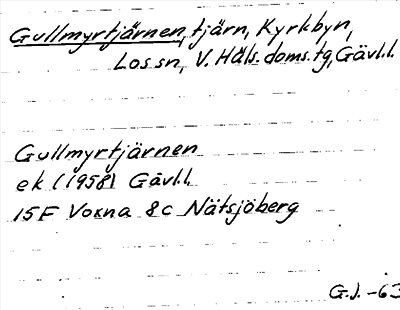 Gullmyrtjärnen, tjärn, Kyrkbyn,
Los sn, V. Häls. doms. tg, Gävl.l.
Gullmyrtjärnen
ek (1958) Gävl.l.
15F Voxna 8c Nätsjöberg
G.J. -63